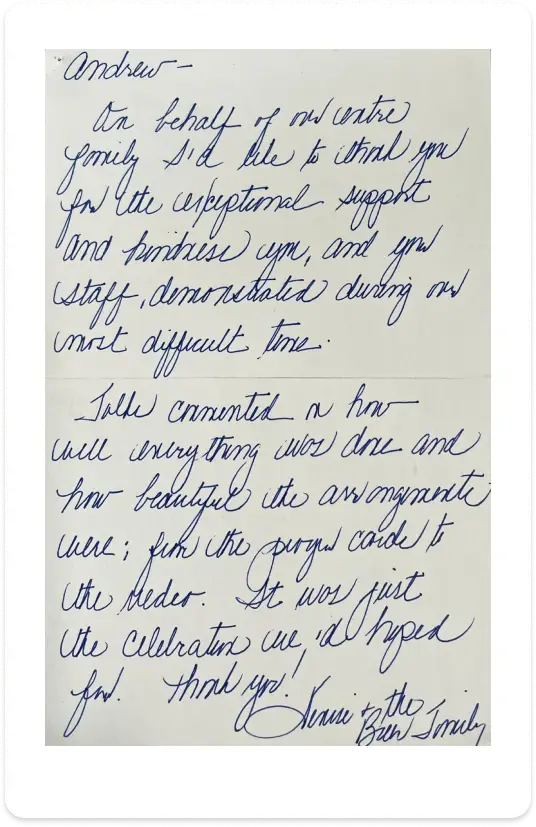 Andrew—
On behalf of our entire
family I'd like to thank you
for the exceptional support
and kindness you, and your
staff, demonstrated during our
most difficult time.
Folks commented on how
well everything was done and
how beautiful the arrangements
were; from the prayer cards to
the video. It was just
the celebration we'd hoped
for. Thank you!
Denise + the
Family